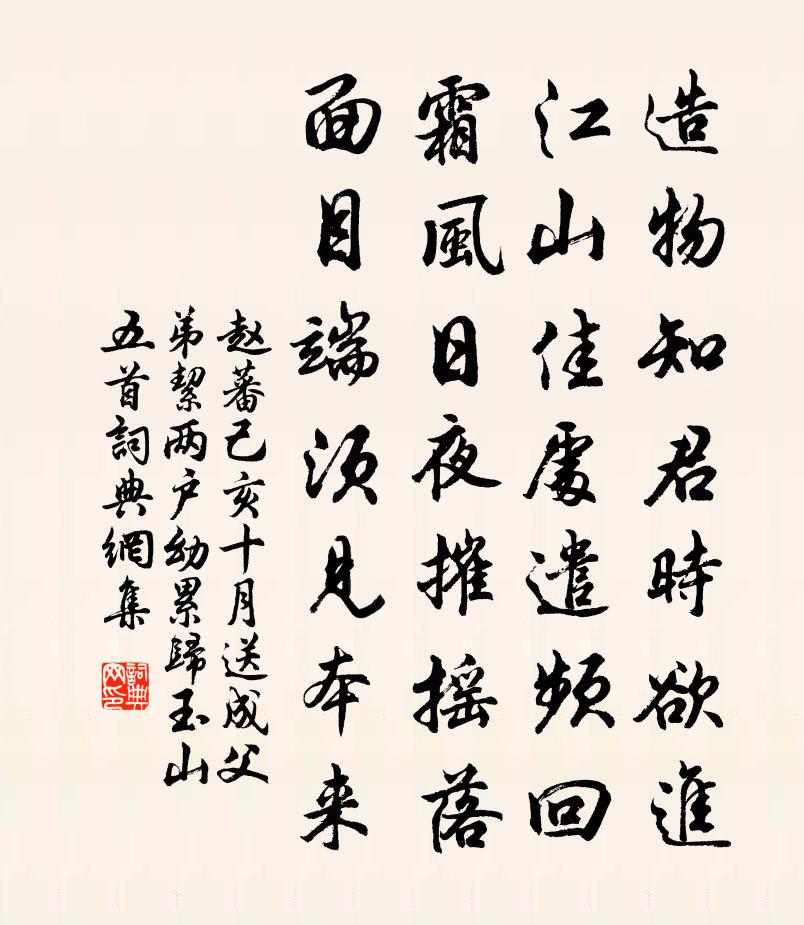 造物知君時欲進
江山佳處遣頻回
霜風日夜摧摇落
面目端須見本来
赵蕃己亥十月送成父
弟絜两户幼累歸玉山
五首詞典網集
詞典網印